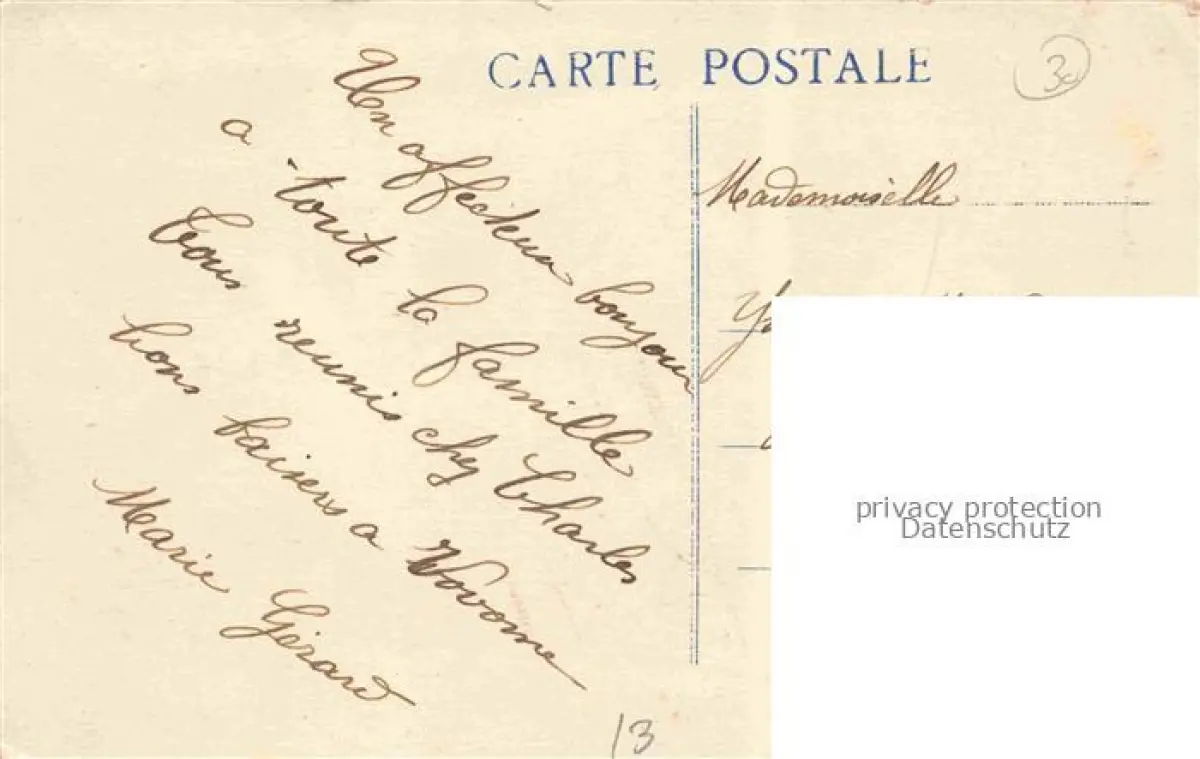 CARTE POSTALE
3c
Un affectueux bonjour
a toute la famille
Tous reunis chez Charles
bons baisers a
Marie Gérard
Mademoiselle
13
privacy protection
Datenschutz